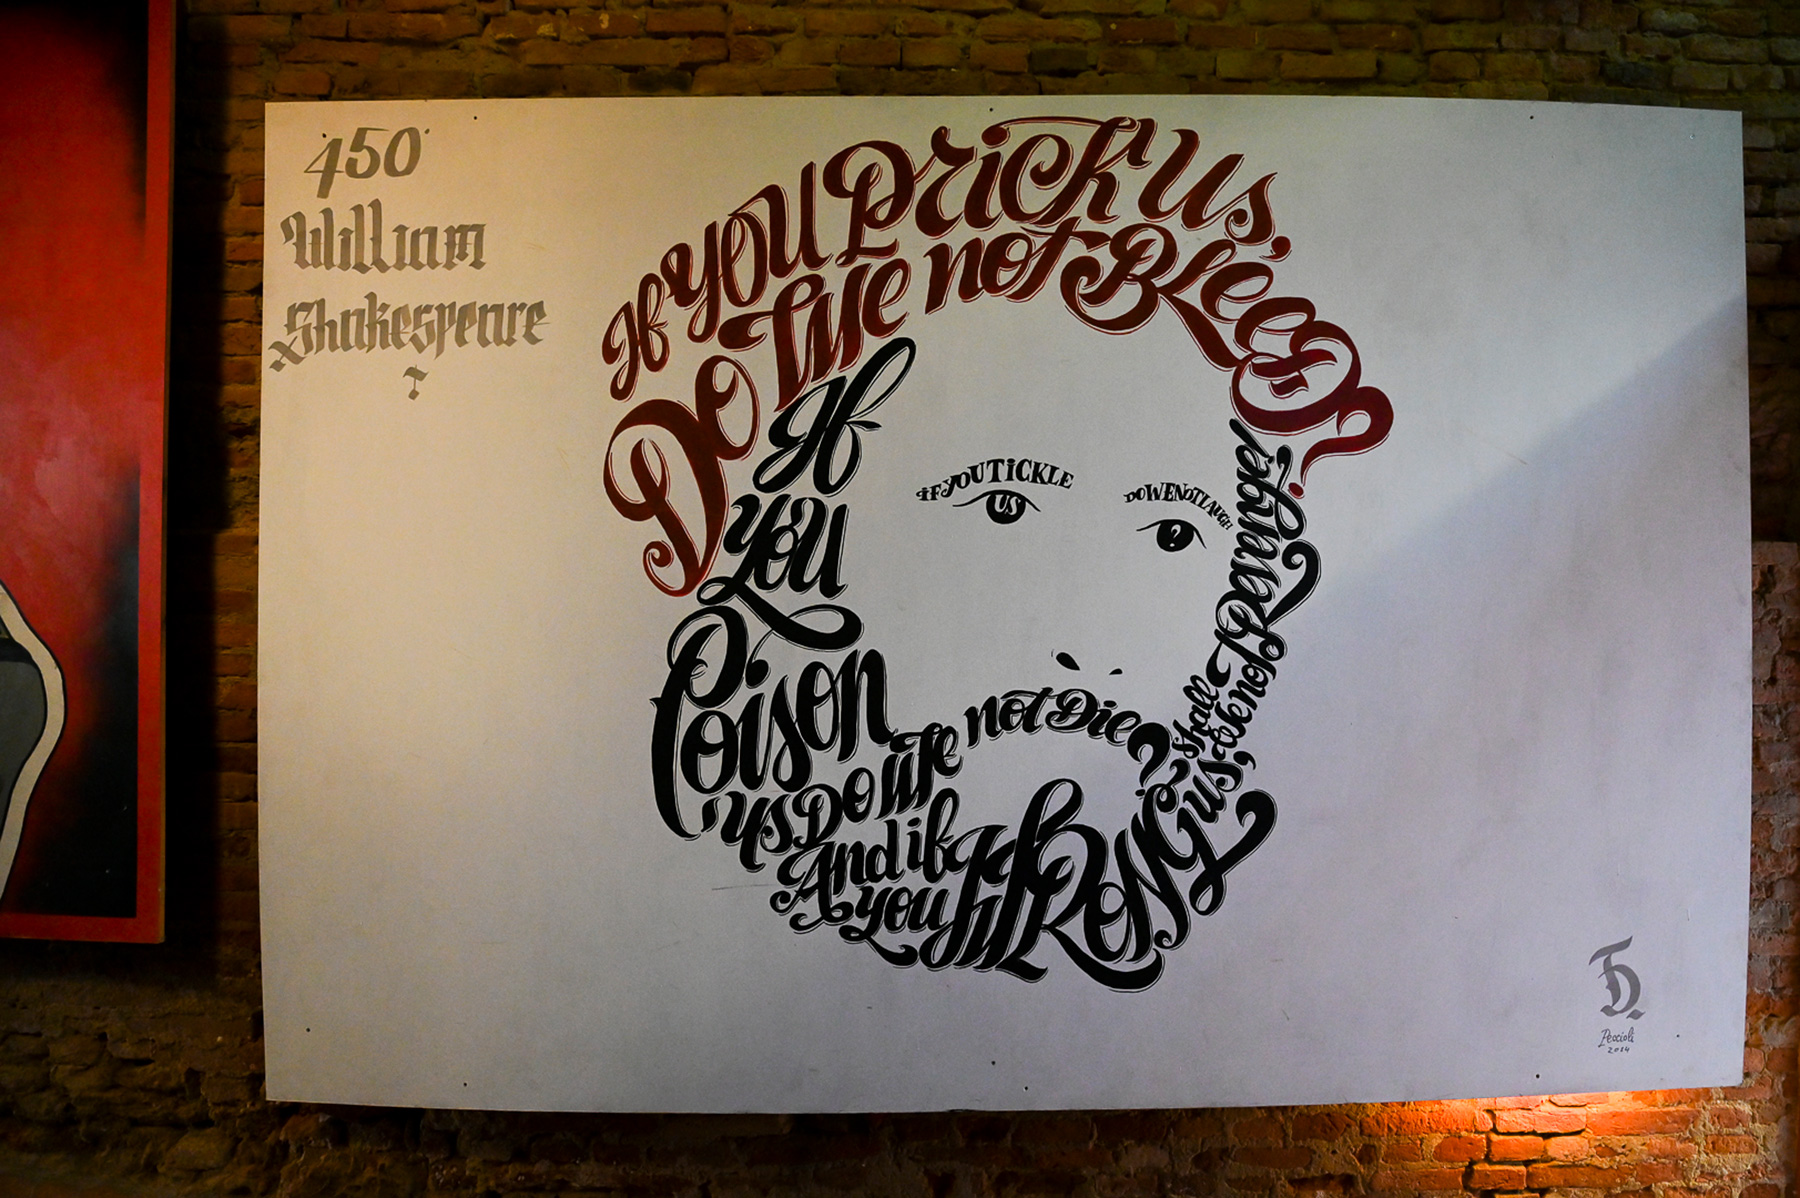 450
William
Shakespeare
If you Prick Us,
Do We not BLeeD?
iF yOU TiCKLE
US
DO WE NOT LAUGH
?
If
you
Poison
us Do We not Die?
And if
you WRONG us,
shall We not Revenge?
Peccioli
2014